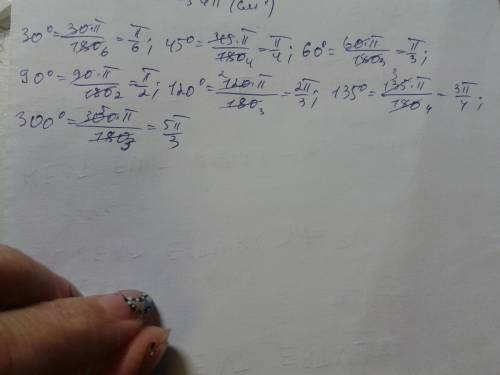 30°=30·π/180 6=π/6; 45°=45·π/180 4=π/4; 60°=60·π/180 3=π/3;
90°=90·π/180 2=π/2; 120°=2 120·π/180 3=2π/3; 135°=3 135·π/180 4=3π/4;
300°=5 300·π/180 3=5π/3